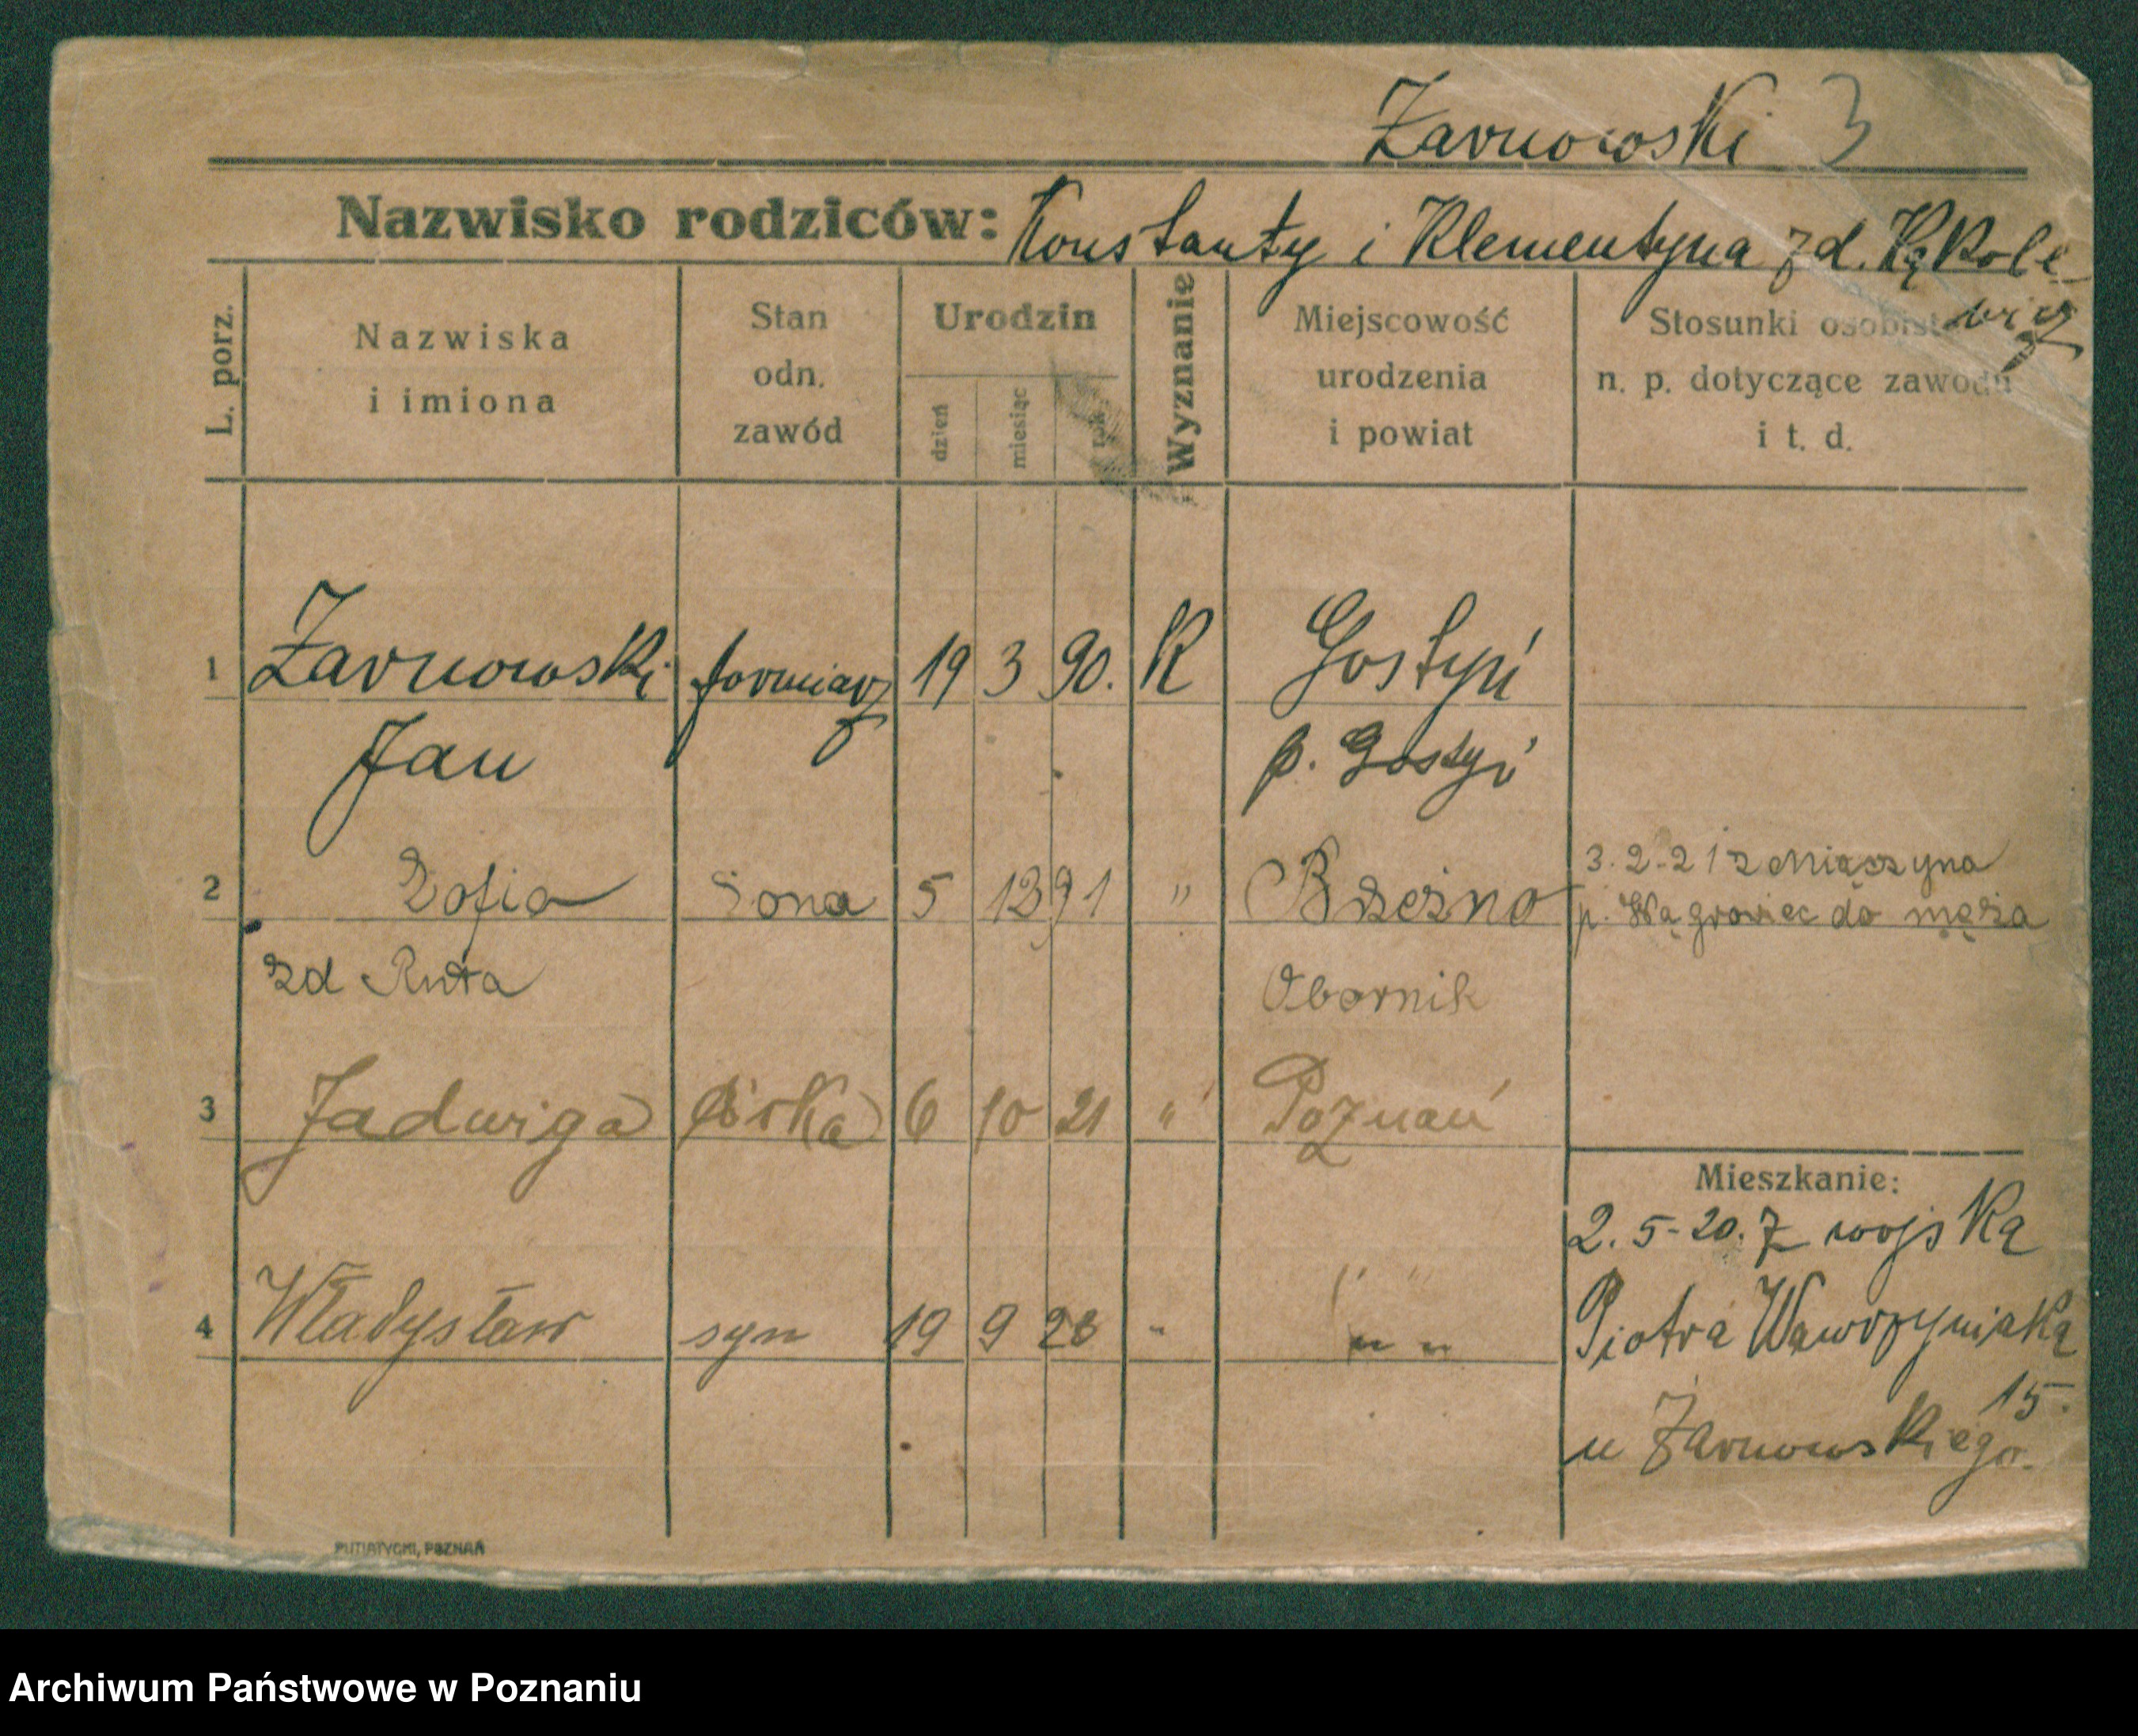 Żarnowski 3
Nazwisko rodziców: Konstanty i Klementyna zd. Kąkole
wicz
L. porz.
Nazwiska
i imiona
Stan
odn.
zawód
Urodzin
dzień
miesiąc
rok
Wyznanie
Miejscowość
urodzenia
i powiat
Stosunki osobiste
n. p. dotyczące zawodu
i t. d.
1 Żarnowski formiarz 19 3 90. K Gostyń
Jan p. Gostyń
3.2-21 z Mięszyna
2 Zofia żona 5 12 91 " Brzeźno p. Wągrowiec do męża
zd Ruta Obornik
3 Jadwiga córka 6 10 21 " Poznań
Mieszkanie:
2. 5-20. Z wojska
4 Władysław syn 19 9 23 " " " Piotra Wawrzyniaka
15.
u Żarnowskiego.
PUTIATYCKI, POZNAŃ
Archiwum Państwowe w Poznaniu